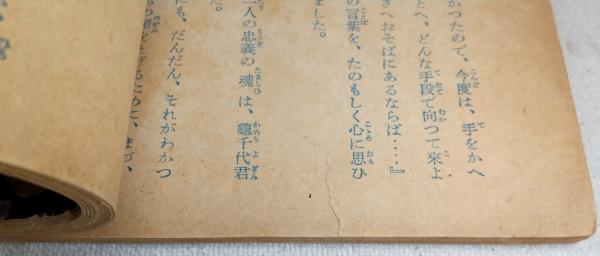 かつたので、今度は、手をかへ
とへ、どんな手段で向つて來よ
さへおそばにあるならば‥‥』
の言葉を、たのもしく心に思ひ
ました。
二人の忠義の魂は、龜千代君
た。
にも、だんだん、それがわかつ